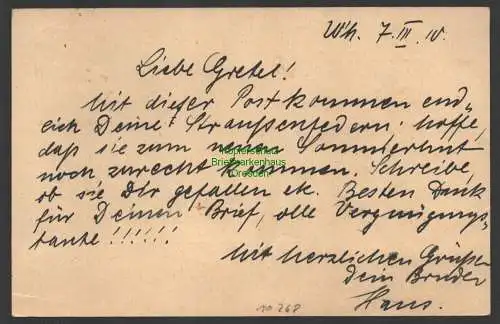 Wh. 7. III. 10.
Liebe Gretel!
Mit dieser Post kommen end=
lich Deine Straussenfedern. Hoffe,
daß sie zum neuen Sommerhut
noch zurecht kommen. Schreibe,
ob sie Dir gefallen etc. Besten Dank
für Deinen Brief, olle Vergnügungs=
tante!!!!!!
Mit herzlichen Grüßen
Dein Bruder
Hans.
10 268
Briefmarkenhaus
Dresden